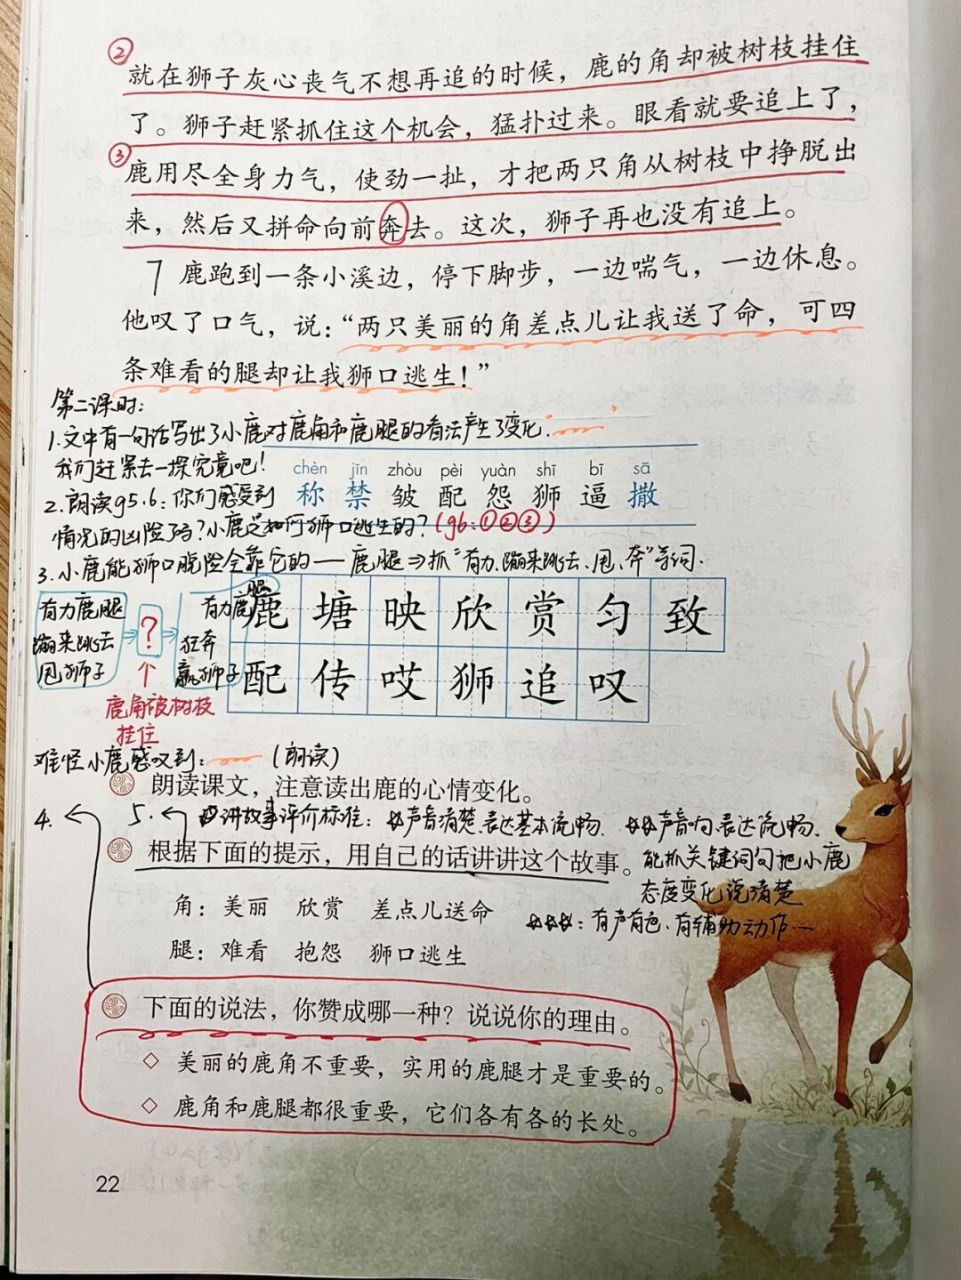 ②
就在狮子灰心丧气不想再追的时候，鹿的角却被树枝挂住
了。狮子赶紧抓住这个机会，猛扑过来。眼看就要追上了，
③
鹿用尽全身力气，使劲一扯，才把两只角从树枝中挣脱出
来，然后又拼命向前奔去。这次，狮子再也没有追上。
7 鹿跑到一条小溪边，停下脚步，一边喘气，一边休息。
他叹了口气，说：“两只美丽的角差点儿让我送了命，可四
条难看的腿却让我狮口逃生！”
第二课时：
1.文中有一句话写出了小鹿对鹿角和鹿腿的看法产生了变化.
我们赶紧去一探究竟吧！
chèn jīn zhòu pèi yuàn shī bī sā
称 禁 皱 配 怨 狮 逼 撒
2.朗读g5.6：你们感受到
情况的凶险了吗？小鹿是如何狮口逃生的？(g6：①②③)
3.小鹿能狮口脱险全靠它的——鹿腿⇒抓“有力、蹦来跳去、甩、奔”等词.
鹿 塘 映 欣 赏 匀 致
配 传 哎 狮 追 叹
有力鹿腿
蹦来跳去
甩狮子
?
有力鹿腿
狂奔
赢狮子
鹿角被树枝
挂住
难怪小鹿感叹到： (朗读)
朗读课文，注意读出鹿的心情变化。
4.
5. 讲故事评价标准：☆声音清楚.表达基本流畅. ☆☆声音响.表达流畅.
能抓关键词句把小鹿
态度变化说清楚
☆☆☆：有声有色、有辅助动作
根据下面的提示，用自己的话讲讲这个故事。
角：美丽 欣赏 差点儿送命
腿：难看 抱怨 狮口逃生
下面的说法，你赞成哪一种？说说你的理由。
◇ 美丽的鹿角不重要，实用的鹿腿才是重要的。
◇ 鹿角和鹿腿都很重要，它们各有各的长处。
22